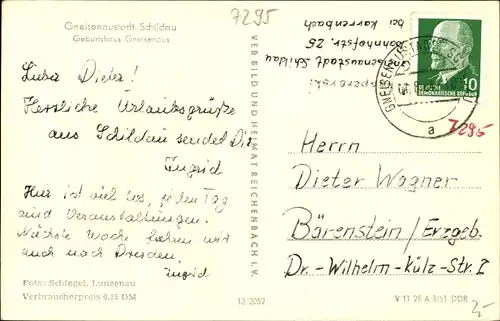 Gneisenaustadt Schildau
Geburtshaus Gneisenaus
7295
Lieber Dieter!
Herzliche Urlaubsgrüße
aus Schildau sendet Dir
Ingrid
Hier ist viel los, jeden Tag
sind Veranstaltungen.
Nächste Woche fahren wir
auch nach Dresden.
Ingrid
Foto: Schlegel, Lunzenau
Verbraucherpreis 0,15 DM
VEB BILD UND HEIMAT REICHENBACH I. V.
13/2052
Gneisenaustadt Schildau
Bahnhofstr. 25
bei Karrenbach
DEUTSCHE
DEMOKRATISCHE REPUBLIK
10
a
7295
Herrn
Dieter Wagner
Bärenstein/Erzgeb.
Dr.-Wilhelm-Külz-Str. 1
V 11 28 A 3/61 DDR
2,-